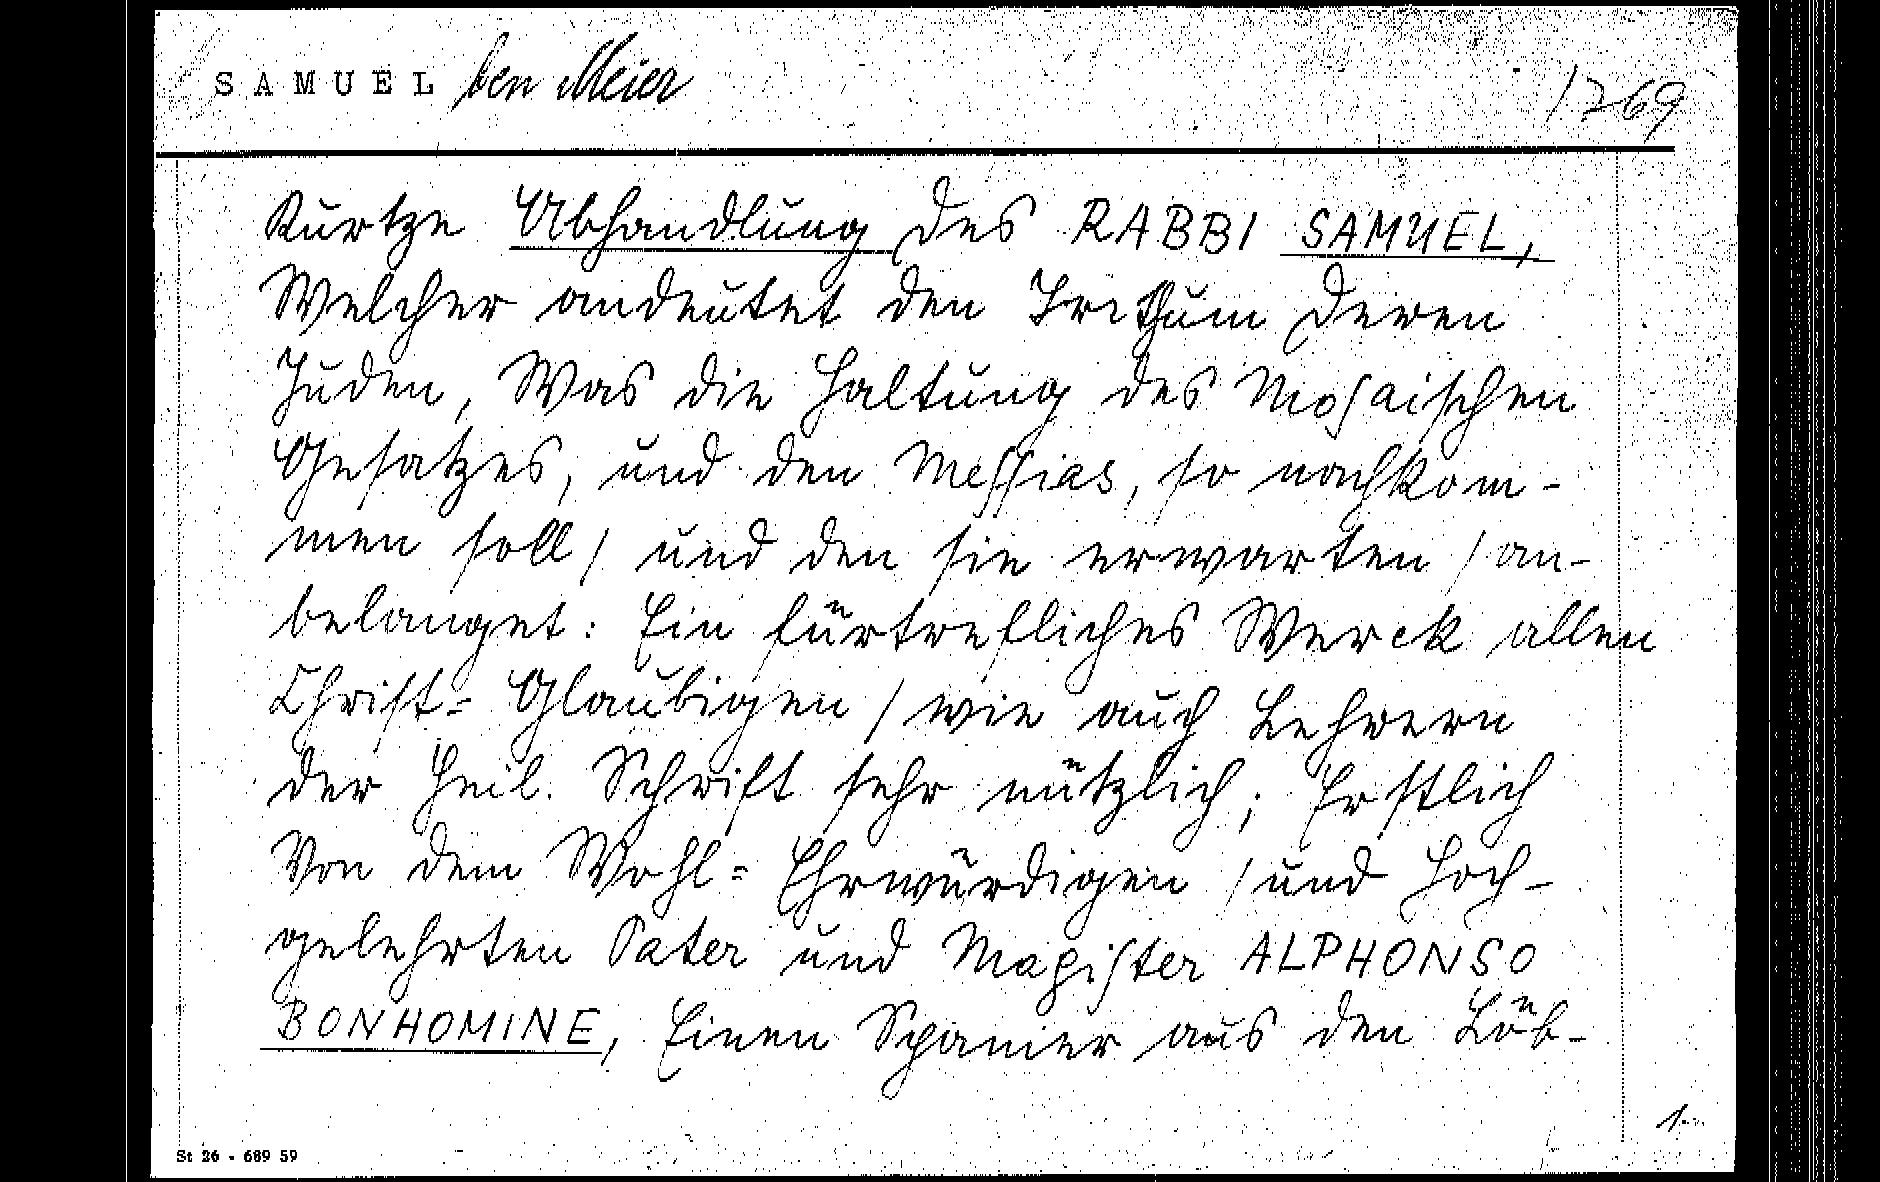 SAMUEL ben Meier
1769
Kurtze Abhandlung des RABBI SAMUEL,
Welcher andeutet den Irrthum deren
Juden, Was die Haltung des Mosaischen
Gesatzes, und den Messias, so nachkom-
men soll / und den sie erwarten / an-
belanget: Ein fuͤrtrefliches Werck allen
Christ= Glaubigen / wie auch Lehrern
der Heil. Schrift sehr nuͤtzlich; Erstlich
Von dem Wohl= Ehrwuͤrdigen / und Hoch-
gelehrten Pater und Magister ALPHONSO
BONHOMINE, Einen Spanier aus den Loͤb-
St 26 - 689 59